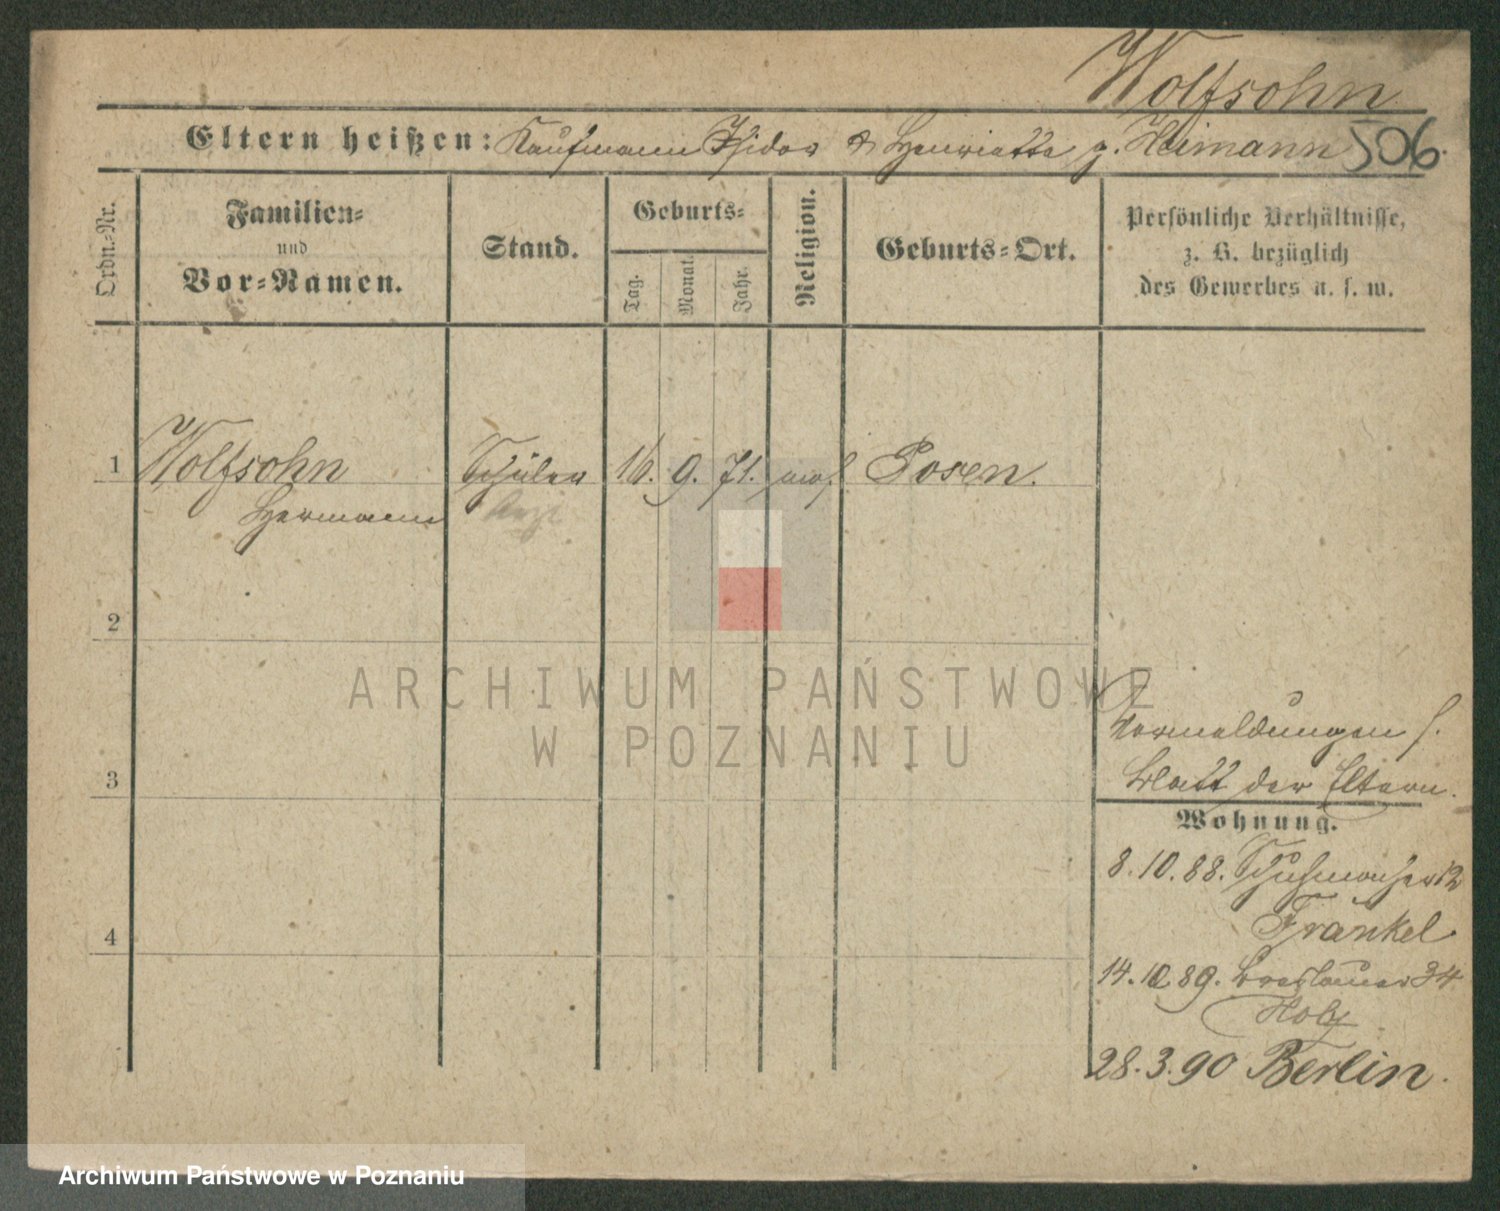 Wolfsohn
Eltern heißen: Kaufmann Isidor & Henriette g. Heimann 506.
Ordn.-Nr.
Familien-
und
Vor-Namen.
Stand.
Geburts-
Tag.
Monat.
Jahr.
Religion.
Geburts-Ort.
Persönliche Verhältnisse,
z. B. bezüglich
des Gewerbes u. s. w.
1 Wolfsohn Schüler 16. 9. 71. mos. Posen.
Hermann
2
3
4
Vormeldungen s.
Blatt der Eltern.
Wohnung.
8.10.88. Schuhmacher 12
Fränkel
14.10.89. Breslauer 34
Holz
28.3.90 Berlin.
ARCHIWUM PAŃSTWOWE
W POZNANIU
Archiwum Państwowe w Poznaniu